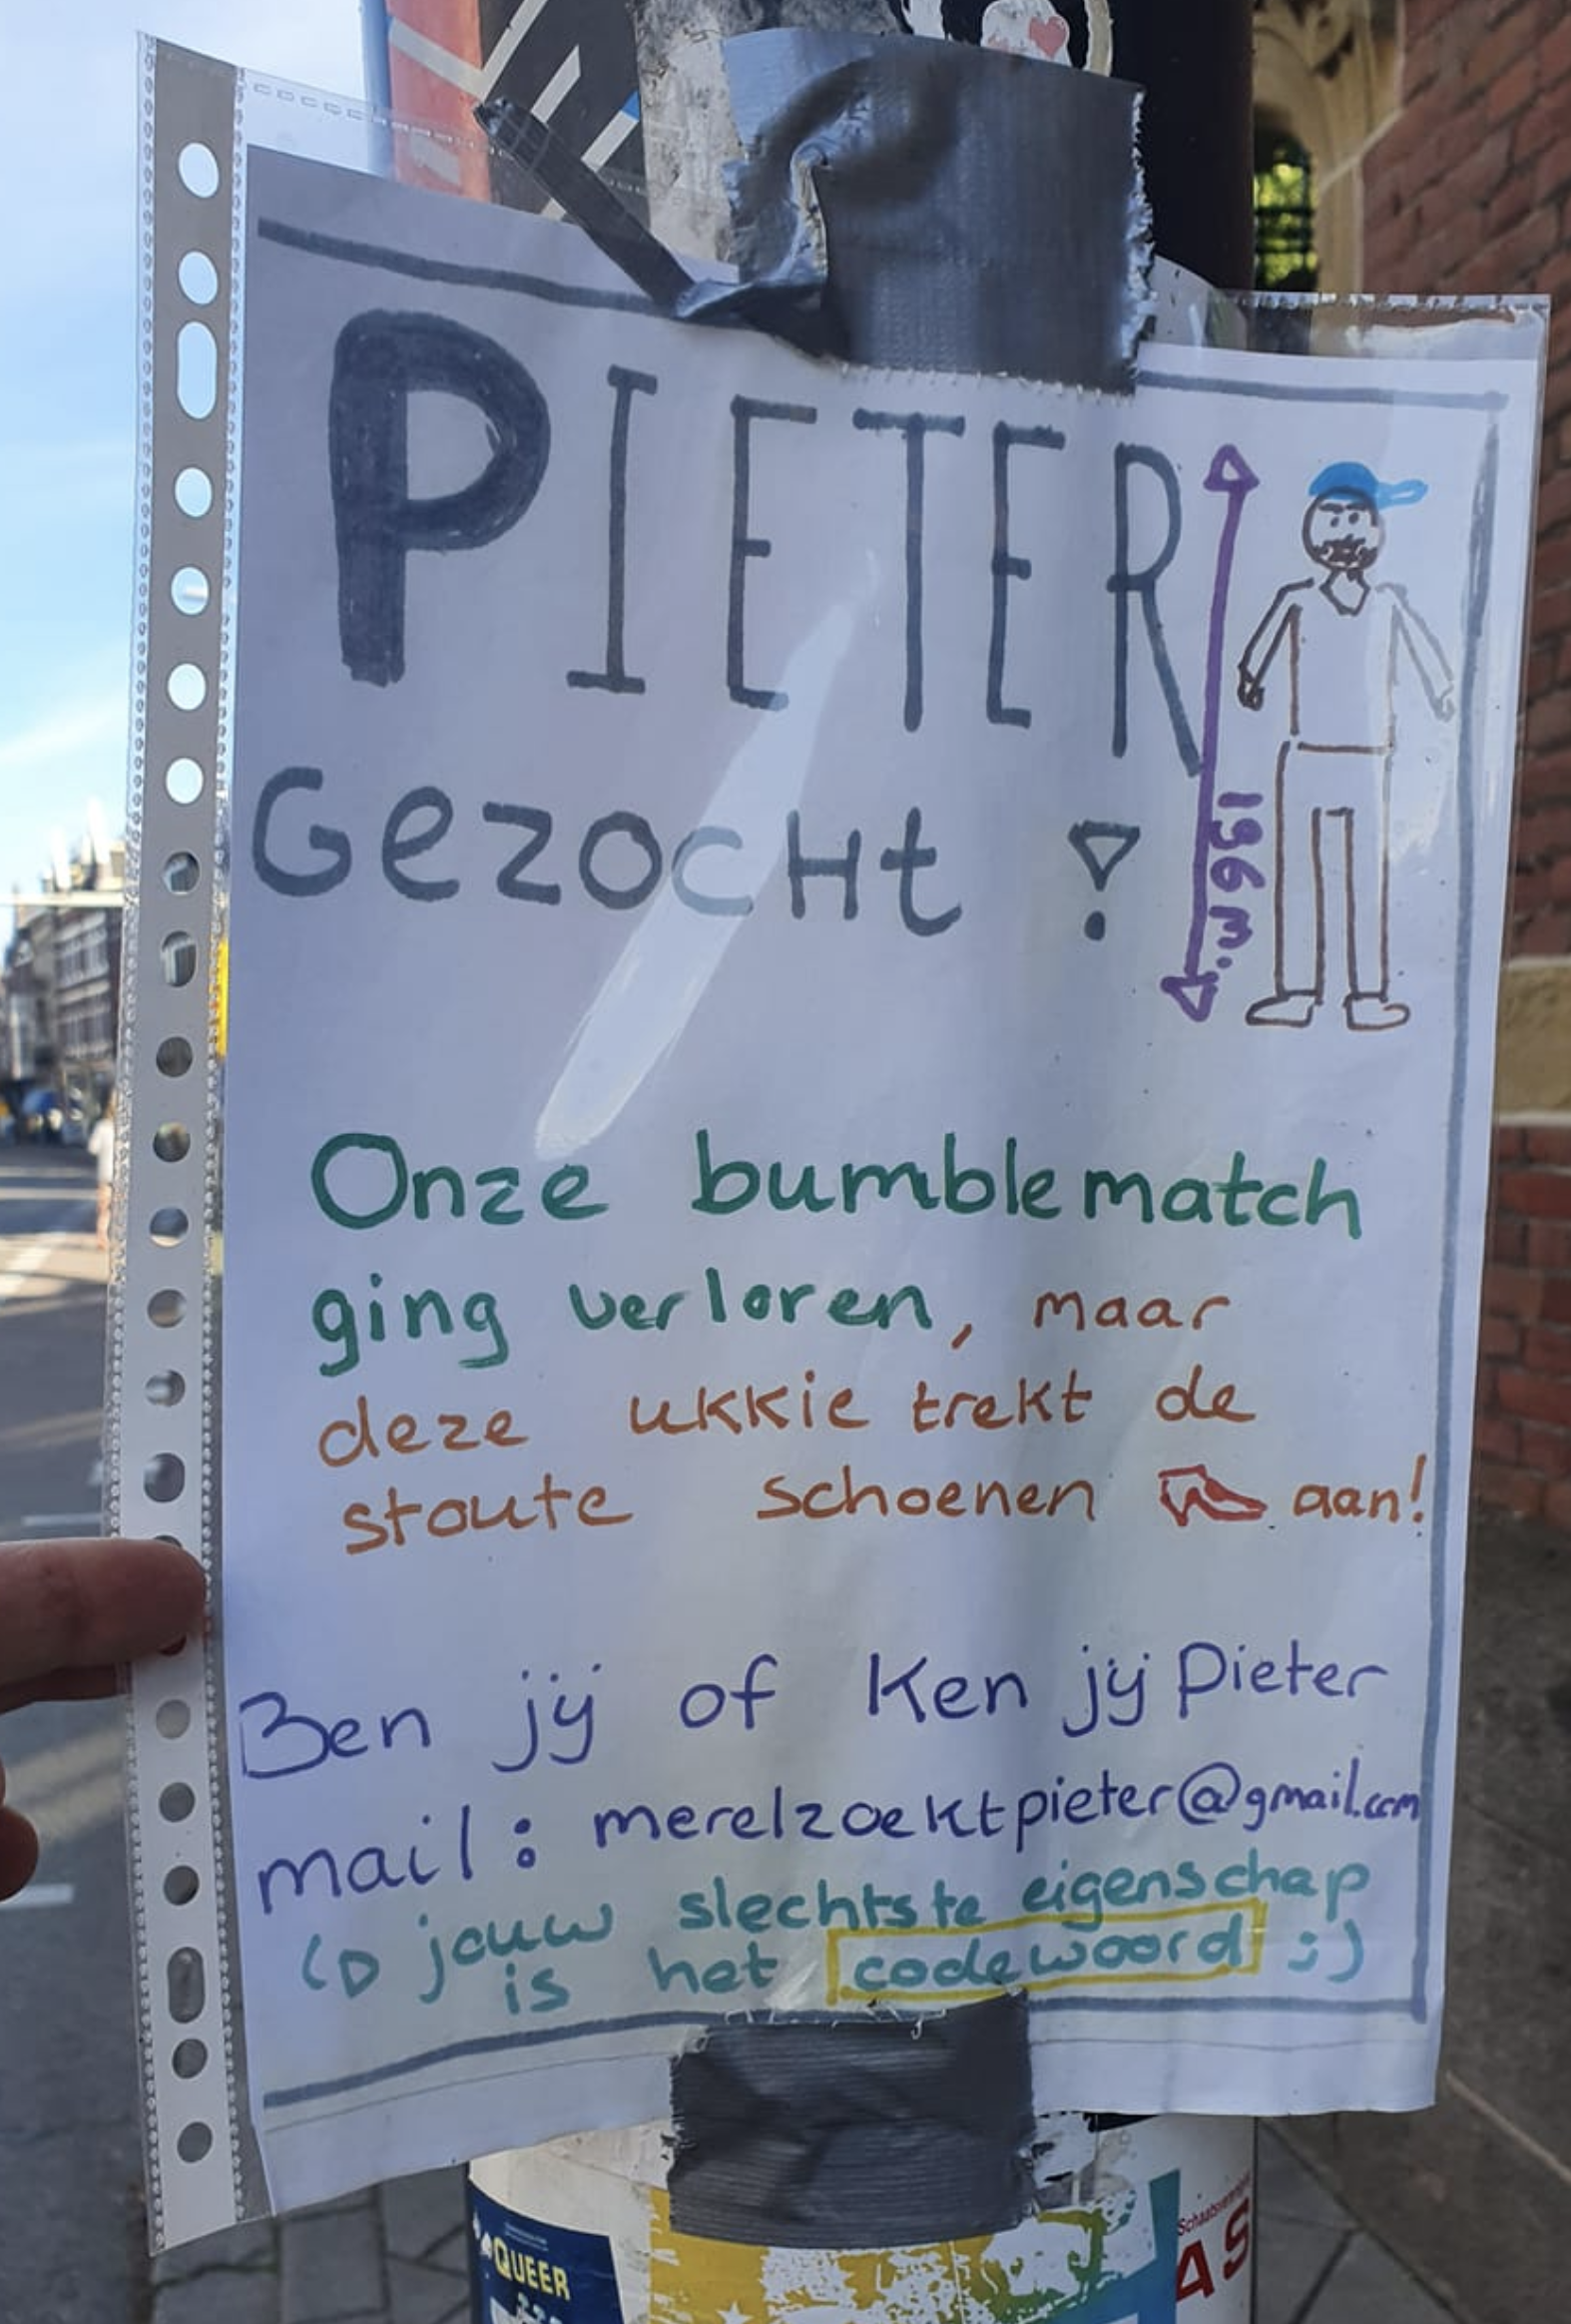 PIETER
Gezocht !
1,96 m.
Onze bumble match
ging verloren, maar
deze ukkie trekt de
stoute schoenen aan!
Ben jij of Ken jij Pieter
mail: merelzoektpieter@gmail.com
(D jouw slechtste eigenschap
is het codewoord ;)
QUEER
AS